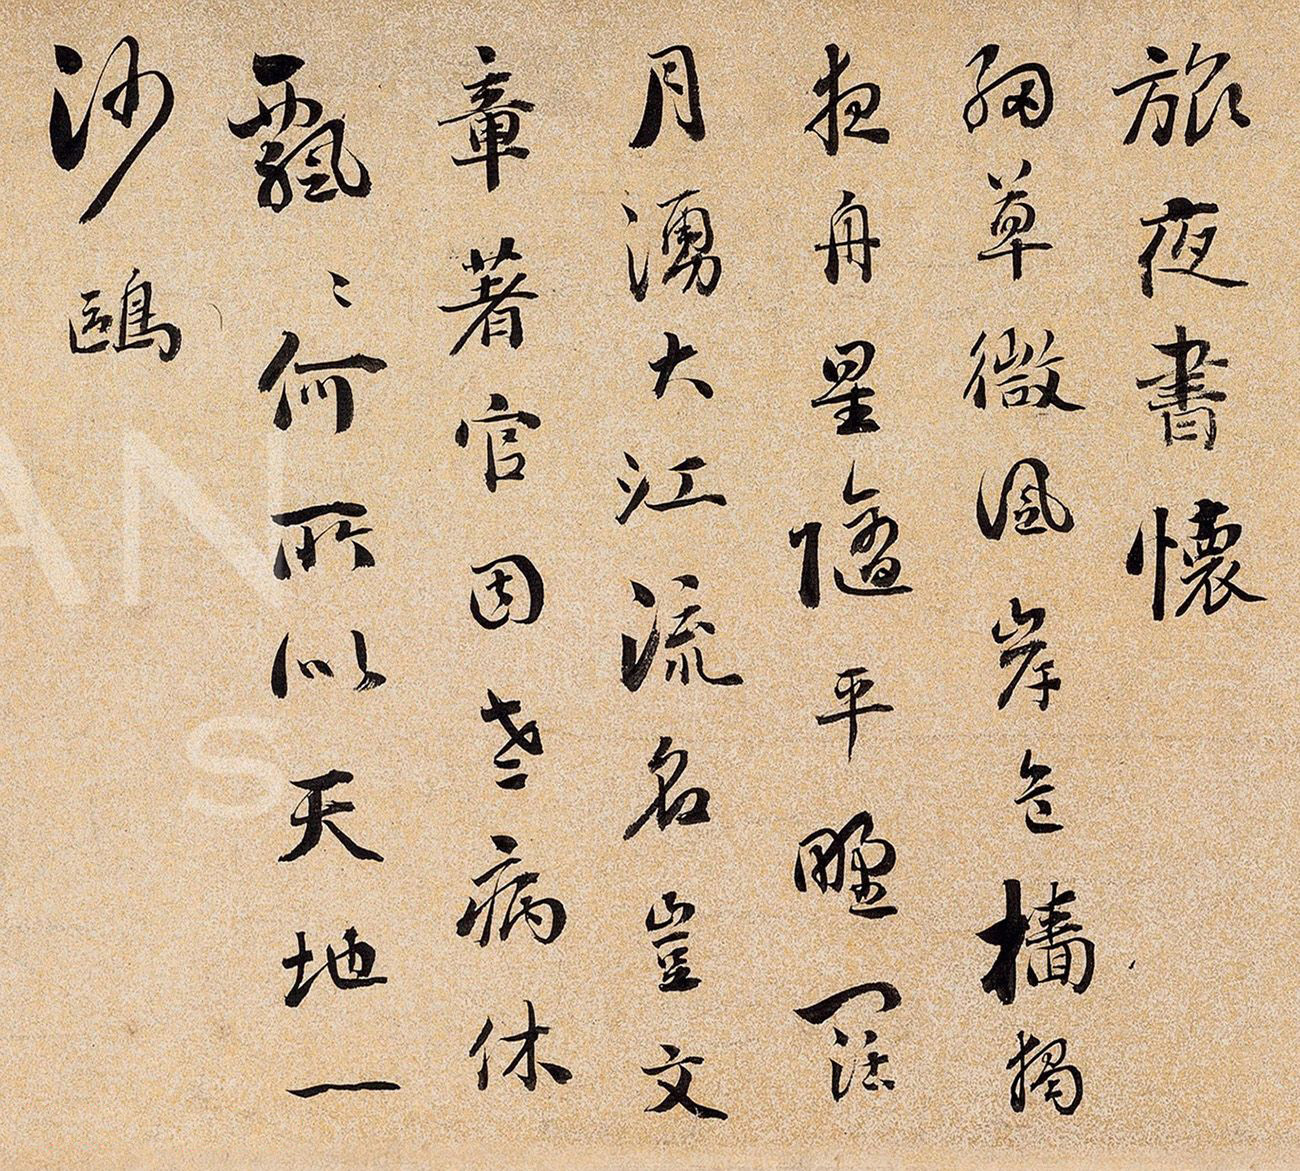 旅夜書懷
細草微風岸危檣獨
夜舟星隨平野闊
月湧大江流名豈文
章著官因老病休
飄〻何所似天地一
沙鷗
AN
S